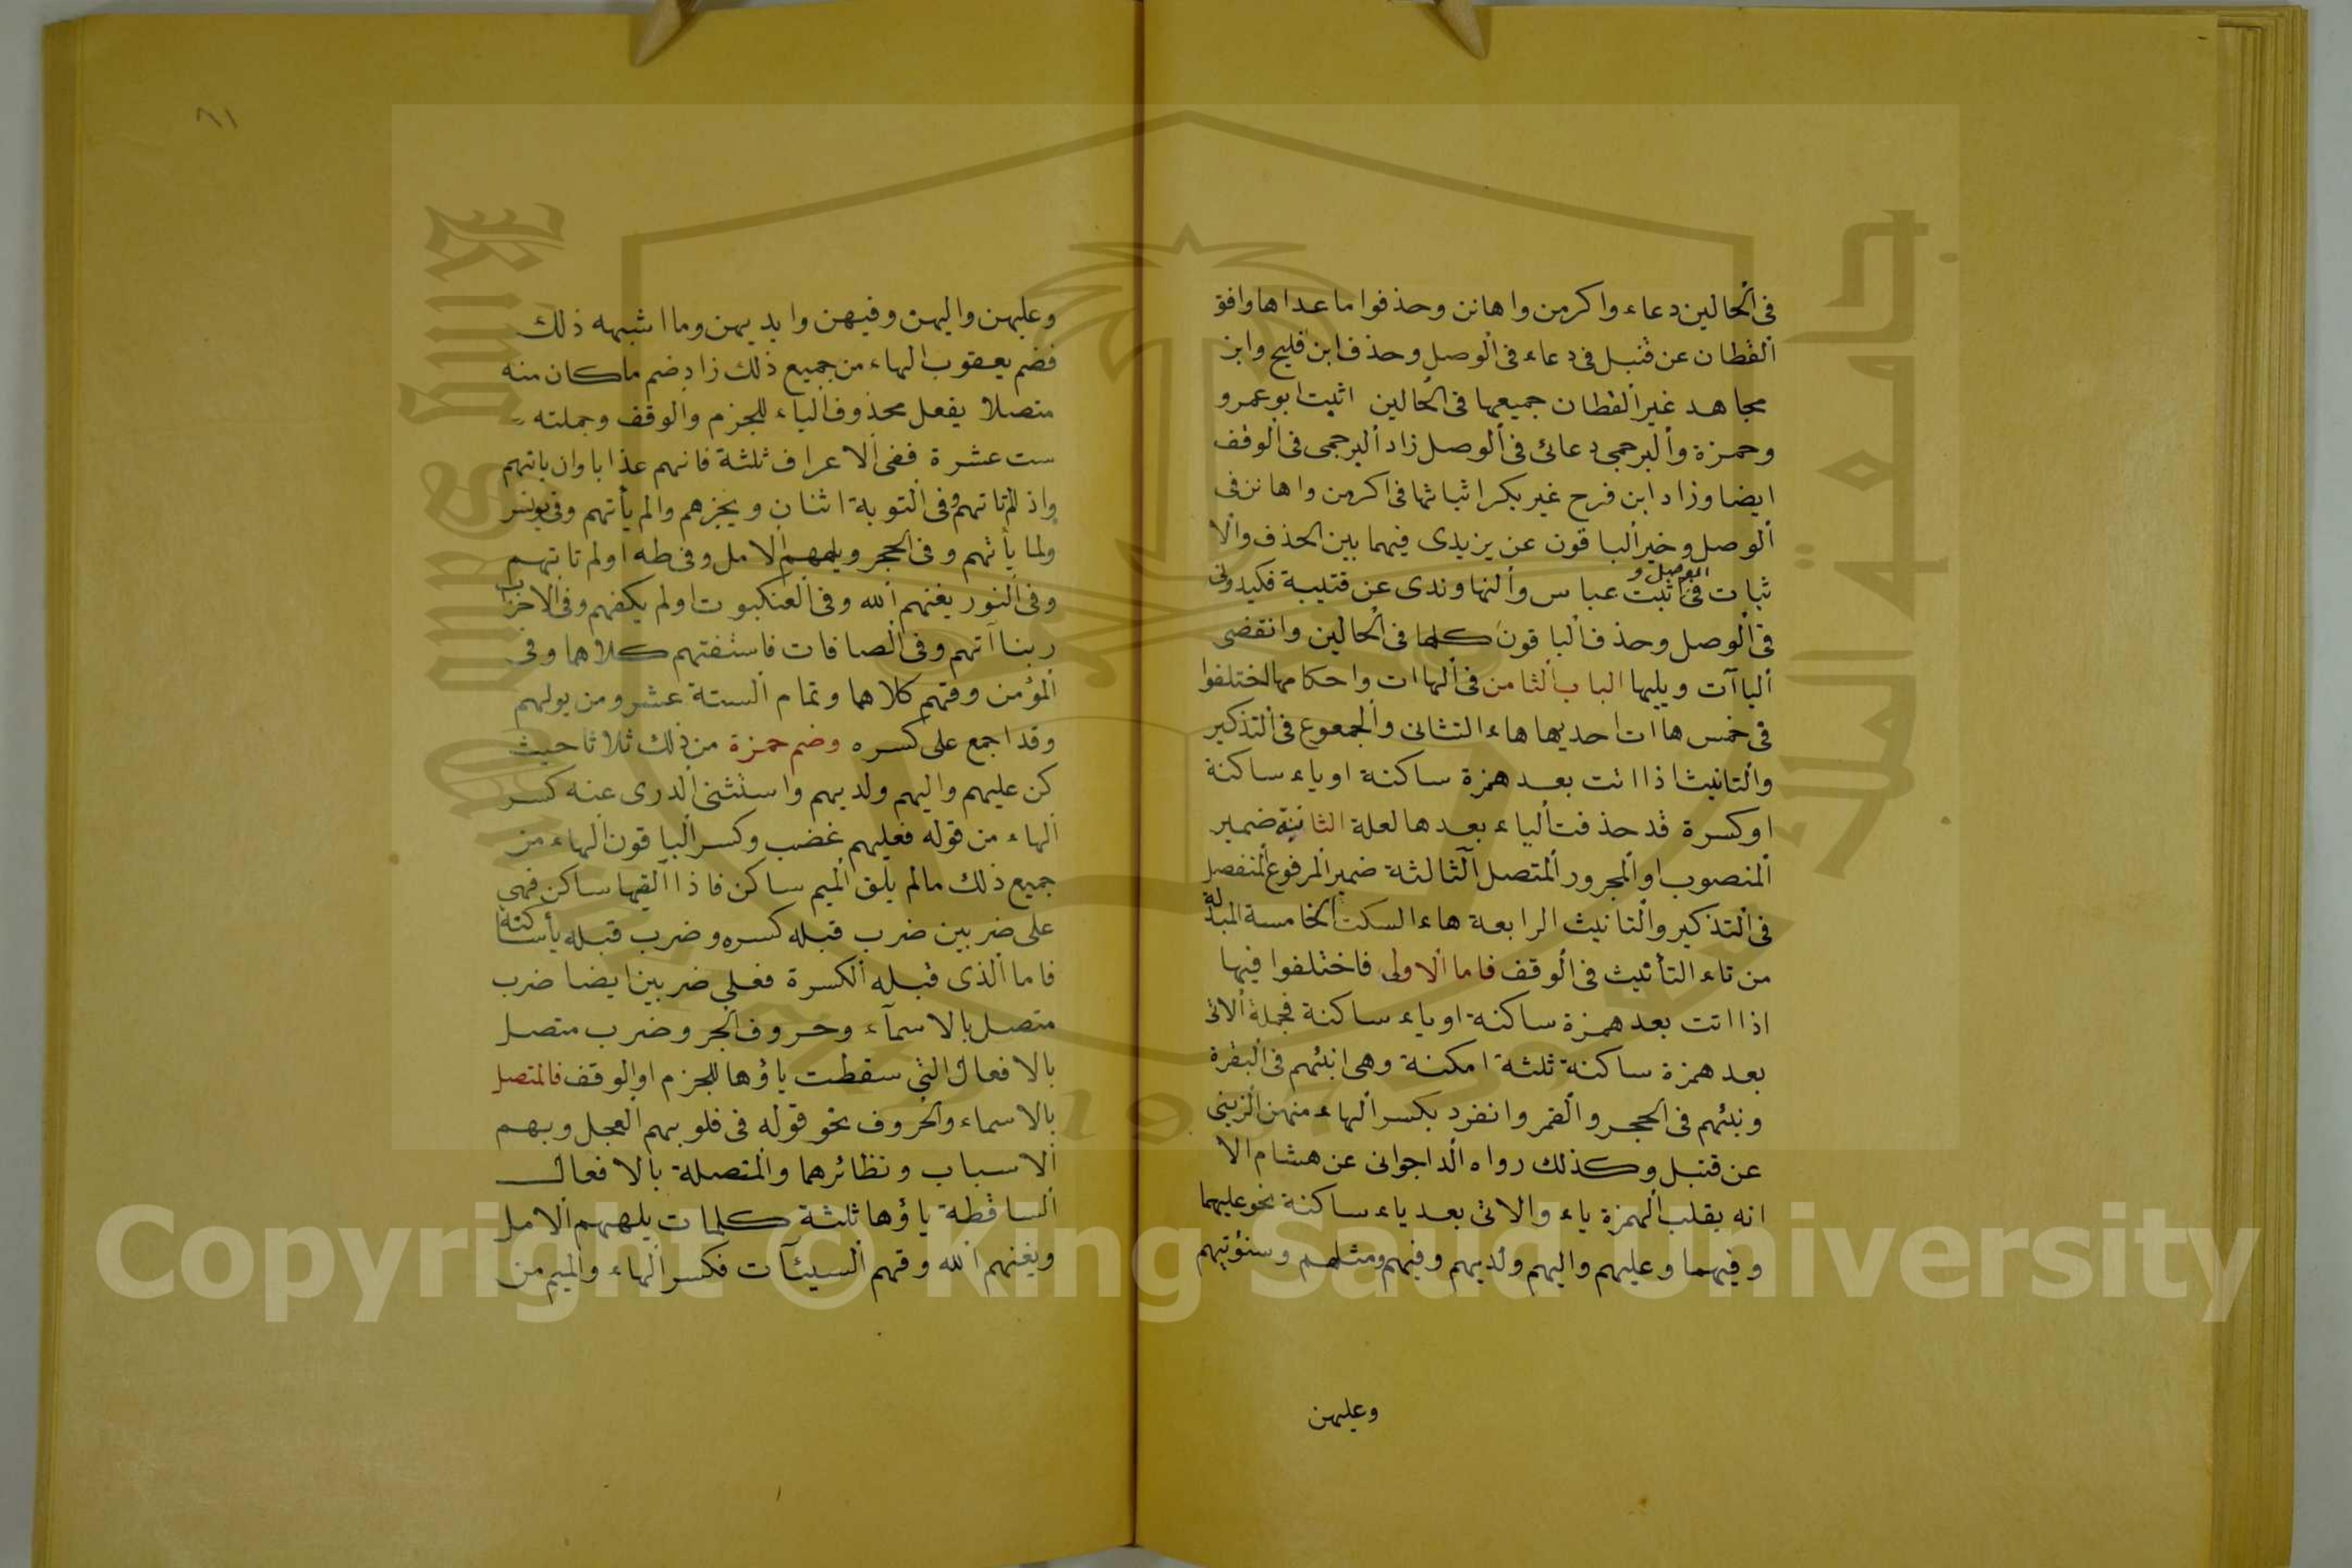 فى الحالين دعاء واكرمن واهانن وحذفوا ما عداها وافق
القطان عن قنبل فى دعاء فى الوصل وحذف ابن فليح وابن
مجاهد غير القطان جميعها فى الحالين اثبت ابو عمرو
وحمزة والبرجمى دعائى فى الوصل زاد البرجمى فى الوقف
ايضا وزاد ابن فرح غير بكر اثباتها فى اكرمن واهانن فى
الوصل وخير الباقون عن يزيدى فيهما بين الحذف والا
ثبات فى الوصل و اثبت عباس والنهاوندى عن قتيبة فكيدونى
فى الوصل وحذف الباقون كلها فى الحالين وانقضى
الياآت ويليها الباب الثامن فى الهاات واحكامها اختلفوا
فى خمس هاات احديها هاء التثانى والجموع فى التذكير
والتانيث اذا اتت بعد همزة ساكنة او ياء ساكنة
او كسرة قد حذفت الياء بعدها لعلة الثانية ضمير
المنصوب او المجرور المتصل الثالثة ضمير المرفوع المنفصل
فى التذكير والتانيث الرابعة هاء السكت الخامسة المبدلة
من تاء التأنيث فى الوقف فاما الاولى فاختلفوا فيها
اذا اتت بعد همزة ساكنة او ياء ساكنة فجملة الاتى
بعد همزة ساكنة ثلثة امكنة وهى انبئهم فى البقرة
ونبئهم فى الحجر والقمر وانفرد بكسر الهاء منهن الزينبى
عن قنبل وكذلك رواه الداجوانى عن هشام الا
انه يقلب الهمزة ياء والاتى بعد ياء ساكنة نحو عليهما
وفيهما وعليهم واليهم ولديهم وفيهم ومثلهم وسنؤتيهم
وعليهن
٦١
وعليهن واليهن وفيهن وايديهن وما اشبهه ذلك
فضم يعقوب الهاء من جميع ذلك زاد ضم ما كان منه
متصلا بفعل محذوف الياء للجزم والوقف وجملته
ست عشرة ففى الاعراف ثلثة فاتهم عذابا وان ياتهم
واذ لم تاتهم وفى التوبة اثنان ويخزهم والم يأتهم وفى يونس
ولما يأتهم وفى الحجر ويلههم الامل وفى طه اولم تاتهم
وفى النور يغنهم الله وفى العنكبوت اولم يكفهم وفى الاحزاب
ربنا آتهم وفى الصافات فاستفتهم كلاهما وفى
المؤمن وقهم كلاهما وتمام الستة عشر ومن يولهم
وقد اجمع على كسره وضم حمزة من ذلك ثلاثا حيث
كن عليهم واليهم ولديهم واستثنى الدرى عنه كسر
الهاء من قوله فعليهم غضب وكسر الباقون الهاء من
جميع ذلك مالم يلق الميم ساكن فاذا القيها ساكن فهى
على ضربين ضرب قبله كسره وضرب قبله يأ ساكنة
فاما الذى قبله الكسرة فعلى ضربين ايضا ضرب
متصل بالاسمآء وحروف الجر وضرب متصل
بالافعال التى سقطت ياؤها للجزم او الوقف فالمتصل
بالاسماء والحروف نحو قوله فى قلوبهم العجل وبهم
الاسباب ونظائرهما والمتصلة بالافعال
الساقطة ياؤها ثلثة كلمات يلههم الامل
ويغنهم الله وقهم السيئآت فكسر الهاء والميم من
Copyright © King Saud University